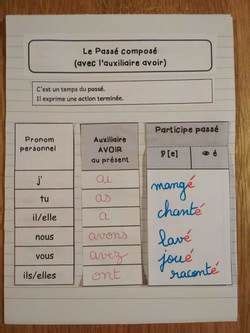 Le Passé composé
(avec l'auxiliaire avoir)
C'est un temps du passé.
Il exprime une action terminée.
Pronom personnel
Auxiliaire AVOIR au présent
Participe passé
[e] é
j' ai
tu as
il/elle a
nous avons
vous avez
ils/elles ont
mangé
chanté
lavé
joué
raconté